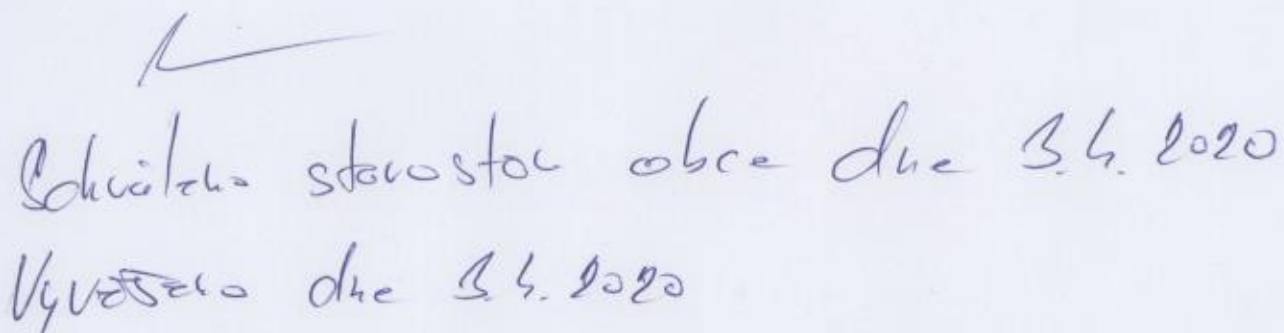 Schváleno starostou obce dne 3.4. 2020
Vyvěšeno dne 3.4. 2020